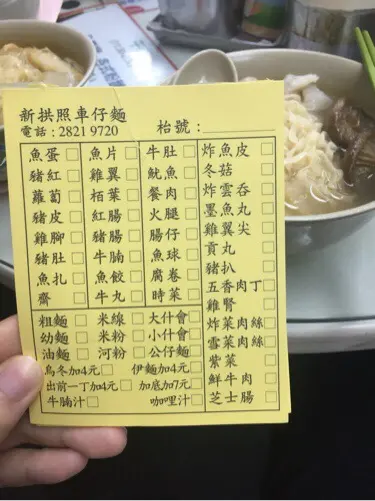 新拱照車仔麵
電話：2821 9720
枱號：
魚蛋
豬紅
蘿蔔
豬皮
雞腳
豬肚
魚扎
齋
魚片
雞翼
栢葉
紅腸
豬腸
牛腩
魚餃
牛丸
牛肚
魷魚
餐肉
火腿
腸仔
魚球
腐卷
時菜
炸魚皮
冬菇
炸雲吞
墨魚丸
雞翼尖
貢丸
豬扒
五香肉丁
雞腎
炸菜肉絲
雪菜肉絲
紫菜
鮮牛肉
芝士腸
粗麵 米線 大什會
幼麵 米粉 小什會
油麵 河粉 公仔麵
烏冬加4元 伊麵加4元
出前一丁加4元 加底加7元
牛腩汁 咖哩汁